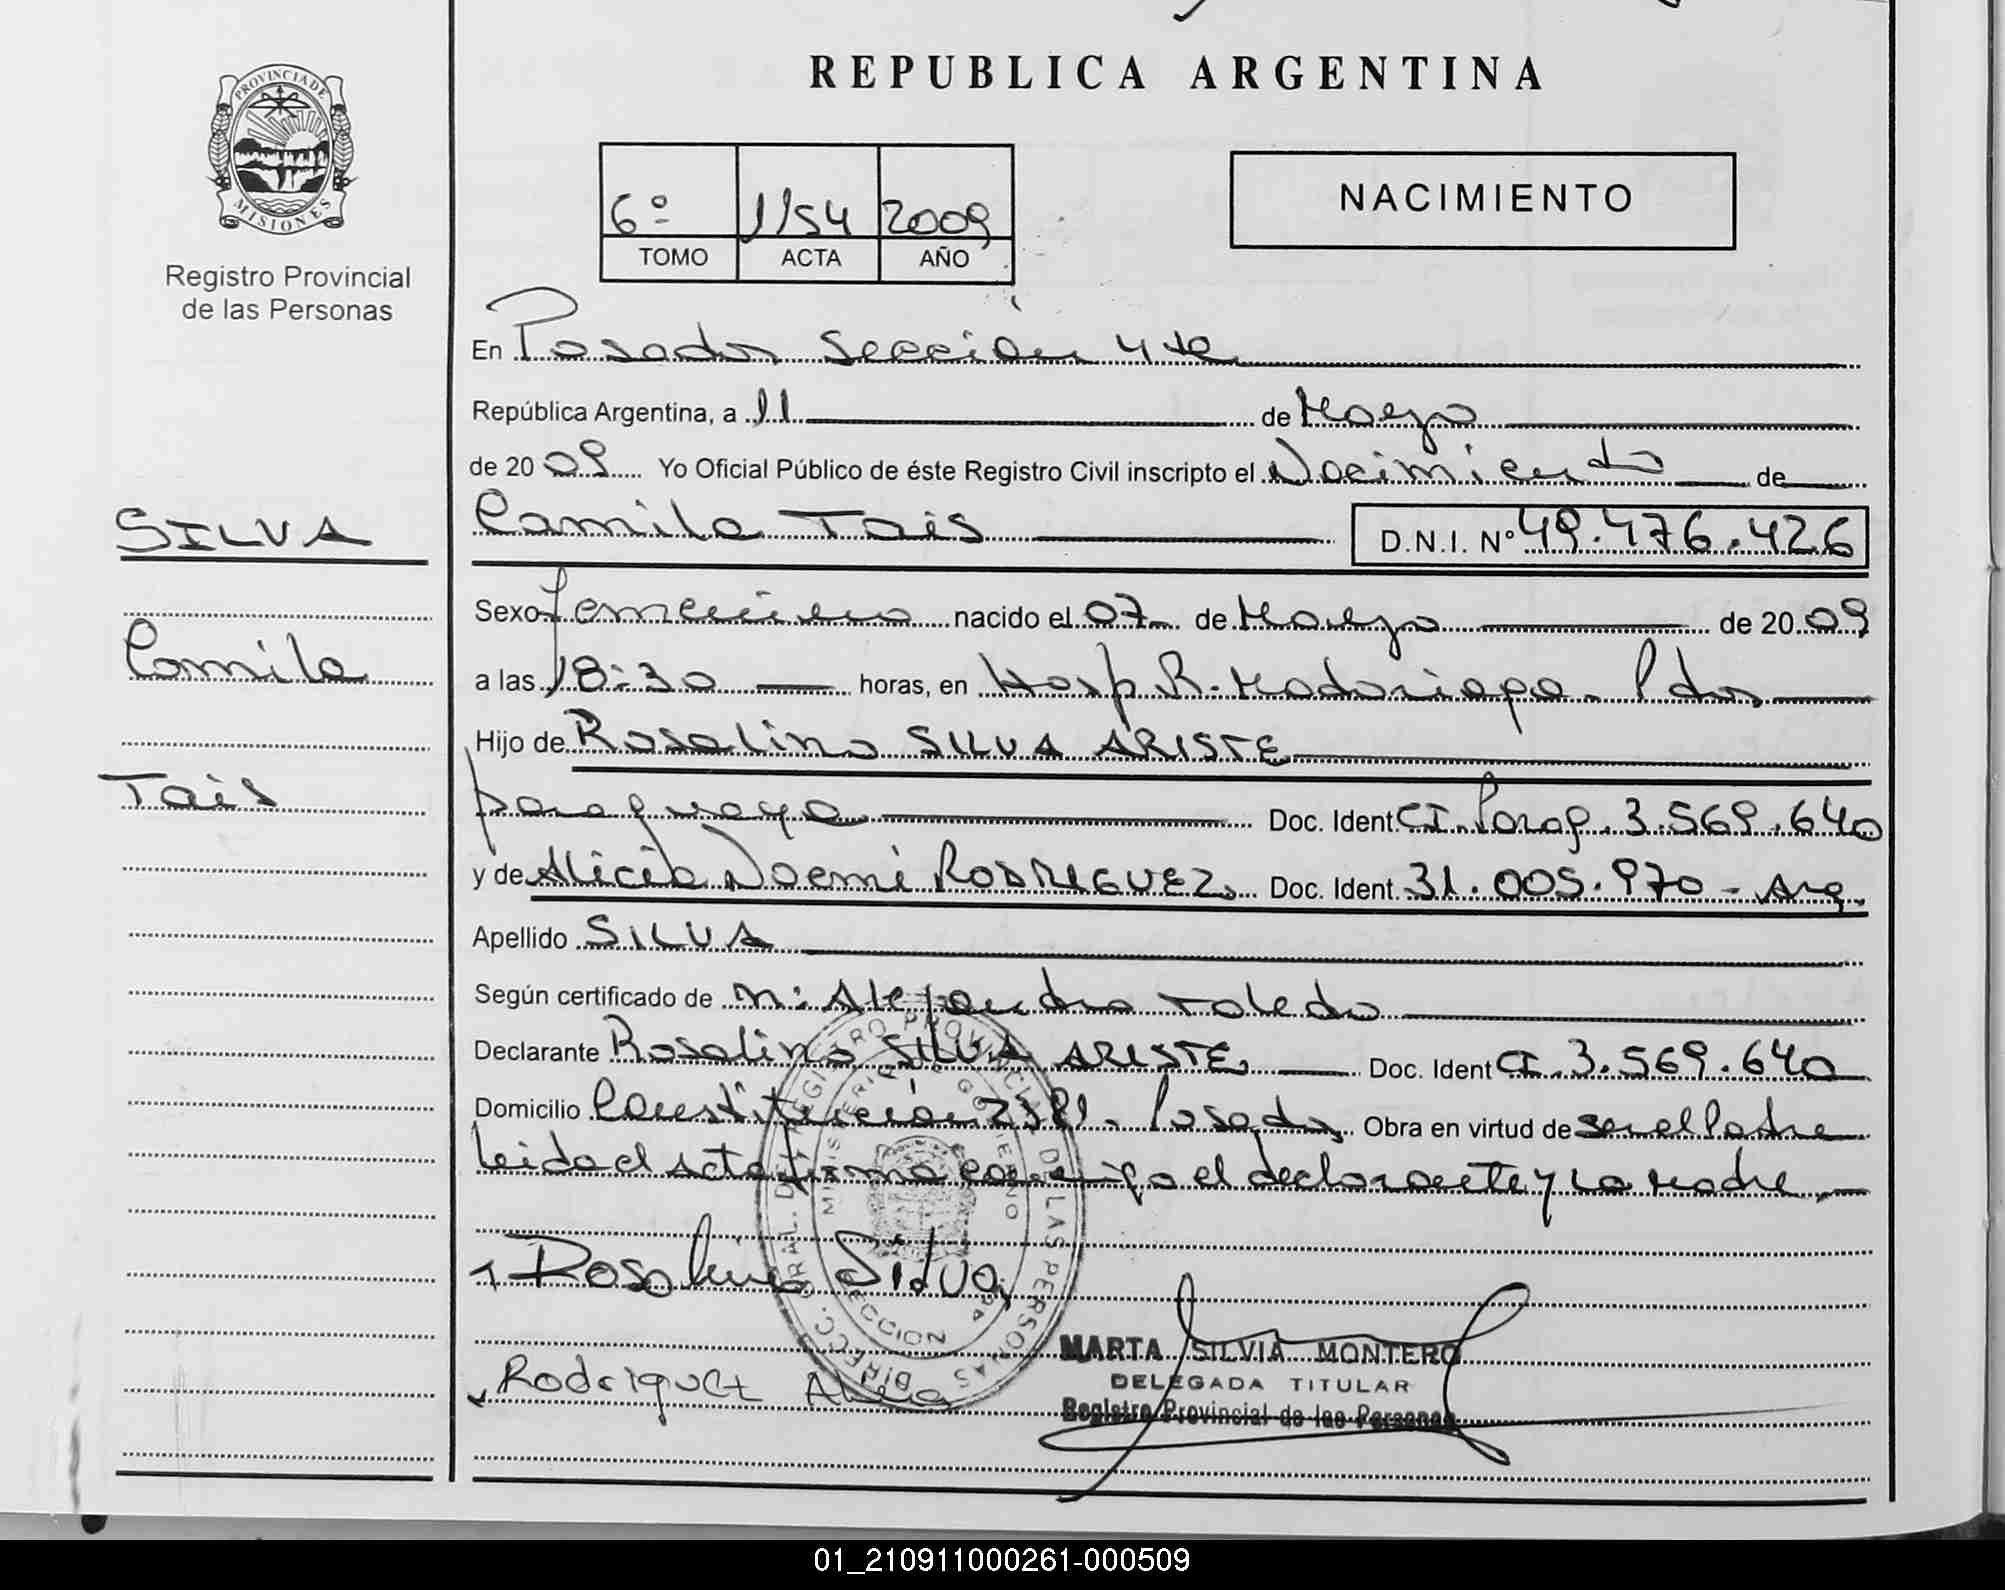 REPUBLICA ARGENTINA
PROVINCIA DE
MISIONES
Registro Provincial
de las Personas
6º 1154 2009
TOMO ACTA AÑO
NACIMIENTO
En Posadas Sección 4ta
República Argentina, a 11 de Mayo
de 2009 Yo Oficial Público de éste Registro Civil inscripto el Nacimiento de
SILVA
Camila Tais D.N.I. Nº 49.476.426
Sexo femenino nacido el 07 de Mayo de 2009
Camila
a las 18:30 horas, en Hosp R. Madariaga. Pdas
Hijo de Rosalino SILVA ARISTE
Tais
paraguayo Doc. Ident. CI. Parag. 3.569.640
y de Alicia Noemi RODRIGUEZ Doc. Ident. 31.005.970 - Arg.
Apellido SILVA
Según certificado de M: Alejandro Toledo
Declarante Rosalino SILVA ARISTE Doc. Ident CI. 3.569.640
Domicilio Constitución Posadas Obra en virtud de ser el Padre
leida el acta firma conmigo el declarante y la madre.
Rosalino Silva
DIRECC. GRAL. DEL REGISTRO PROVINCIAL DE LAS PERSONAS
MINISTERIO DE GOBIERNO
MARTA SILVIA MONTERO
DELEGADA TITULAR
Registro Provincial de las Personas
Rodriguez Alicia
01_210911000261-000509